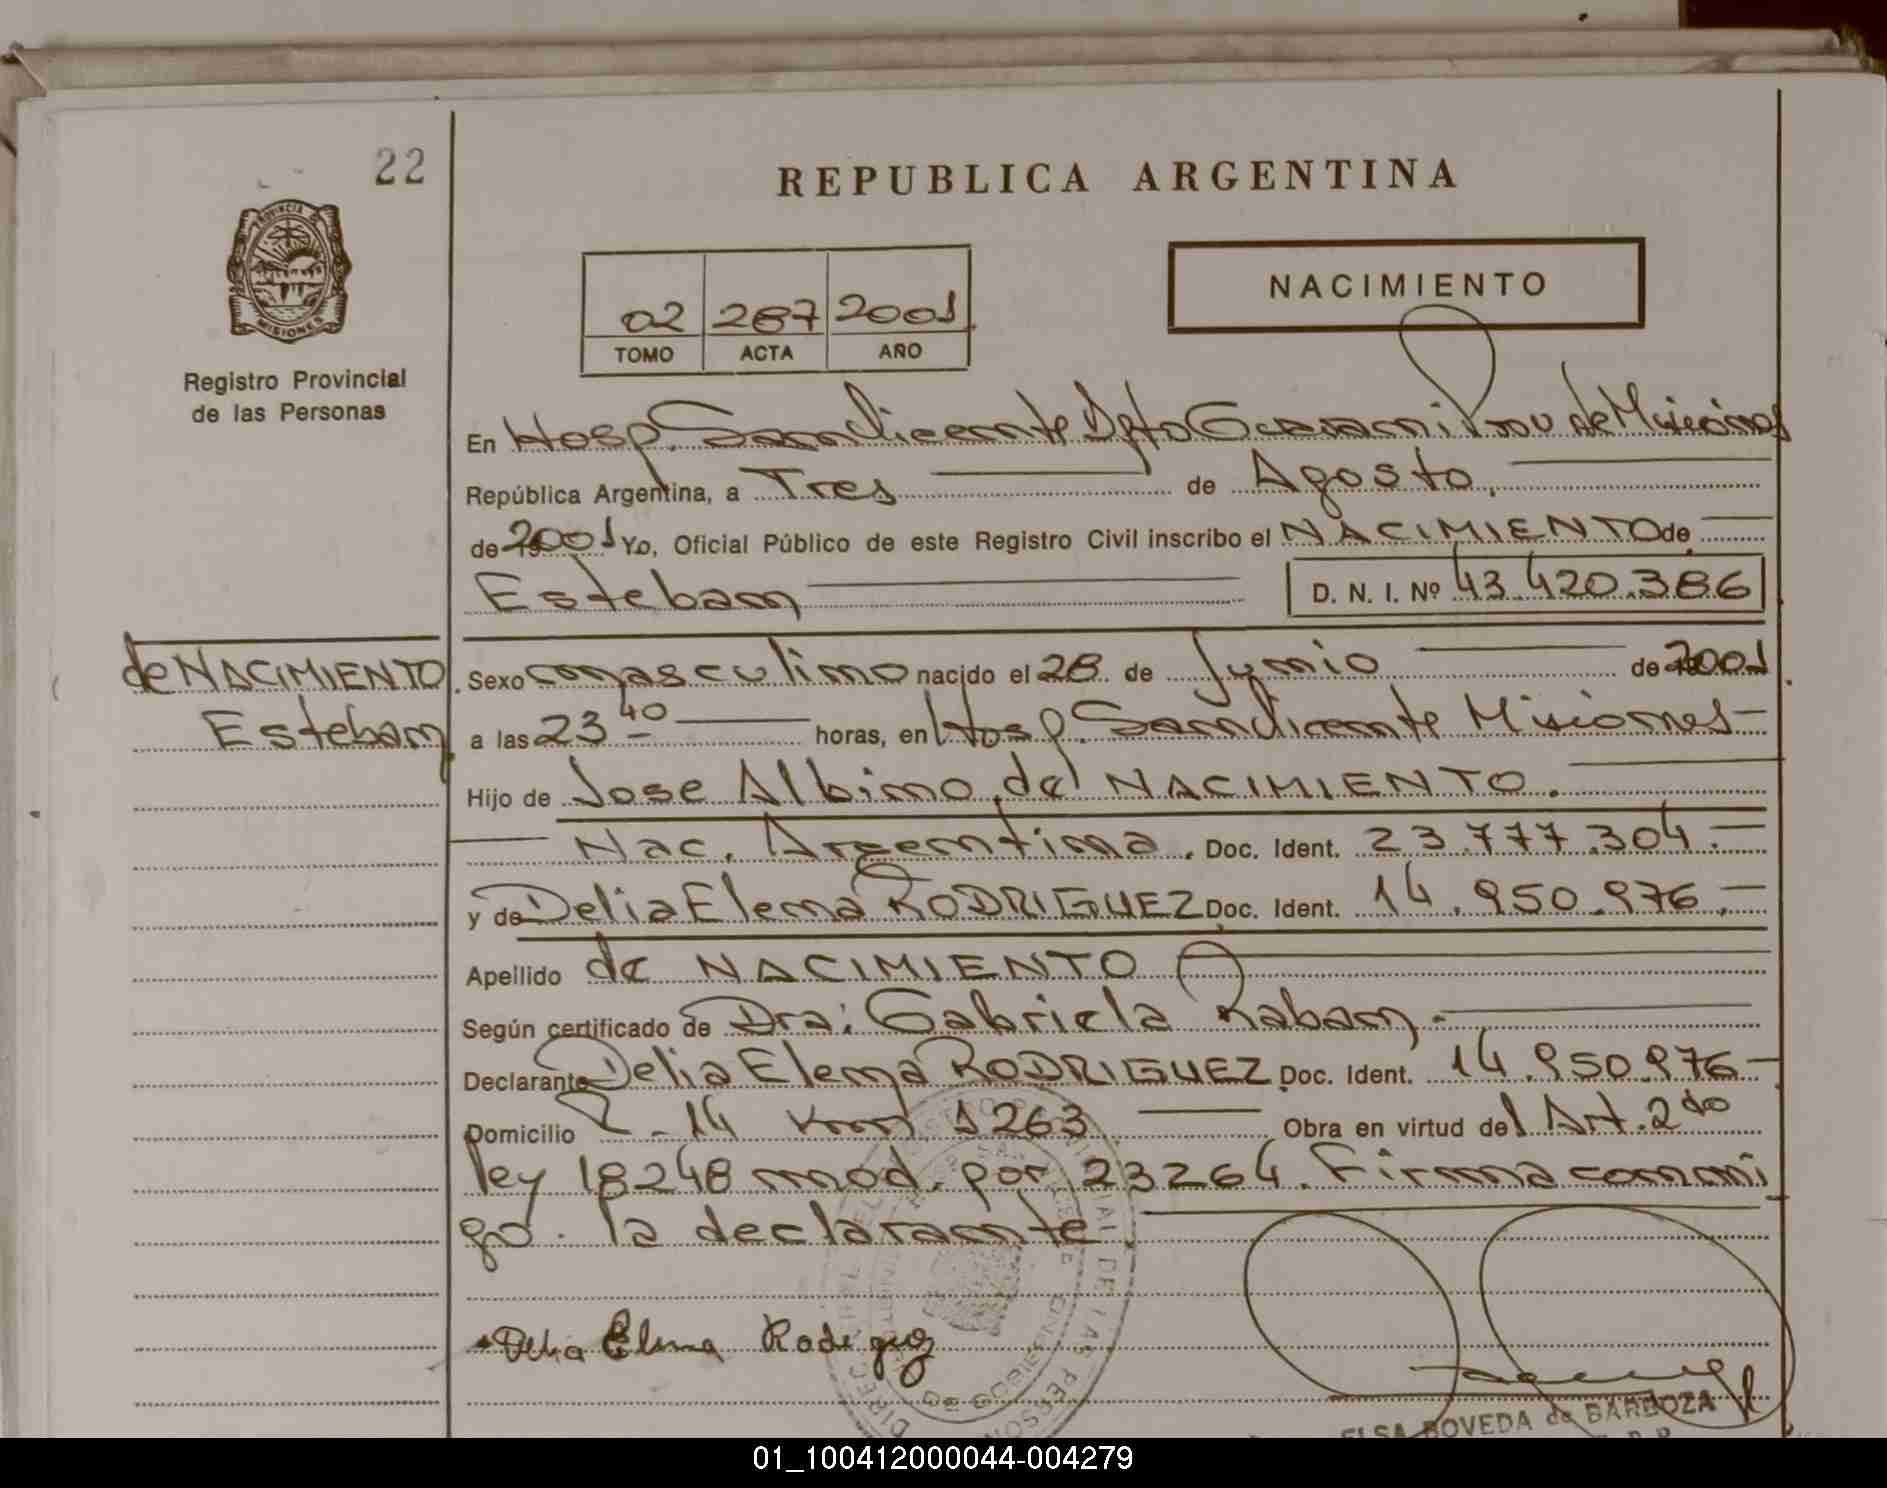 22
REPUBLICA ARGENTINA
PROVINCIA DE
MISIONES
Registro Provincial
de las Personas
02 267 2001
TOMO ACTA AÑO
NACIMIENTO
En Hosp. San Vicente Dpto Guarani Prov de Misiones
República Argentina, a Tres de Agosto.
de 2001 Yo, Oficial Público de este Registro Civil inscribo el NACIMIENTO de
Esteban D. N. I. Nº 43.420.386
de NACIMIENTO
Esteban
Sexo masculino nacido el 28 de Junio de 2001
a las 23 40 horas, en Hosp. San Vicente Misiones
Hijo de Jose Albino de NACIMIENTO.
Nac. Argentina. Doc. Ident. 23.777.304.
y de Delia Elena RODRIGUEZ Doc. Ident. 14.950.976.
Apellido de NACIMIENTO
Según certificado de Dra: Gabriela Raban.
Declarante Delia Elena RODRIGUEZ Doc. Ident. 14.950.976
Domicilio R. 14 Km 1263 Obra en virtud del Art. 2do
ley 18248 mod. por 23264. Firma conmi
go. la declarante
Delia Elena Rodriguez
ELSA BOVEDA de BARBOZA
01_100412000044-004279